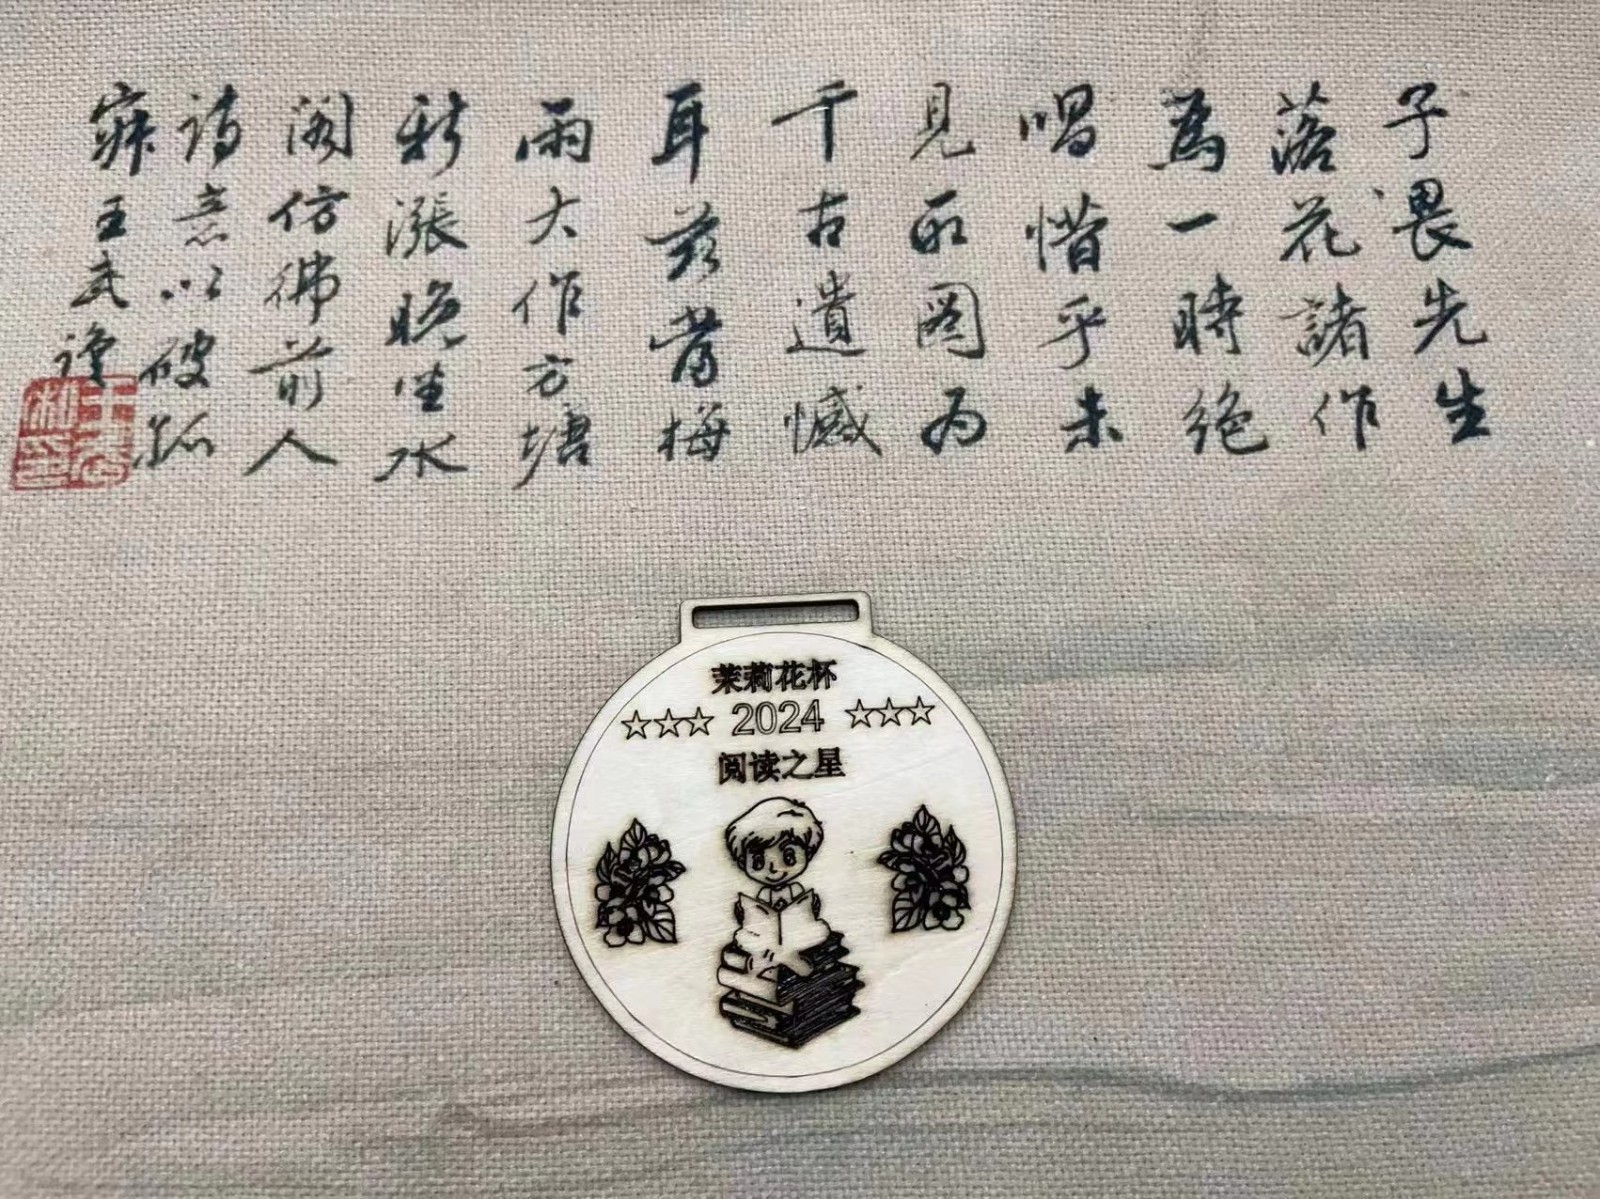 子畏先生
落花諸作
為一時絕
唱惜乎未
見所圖为
千古遺憾
耳茲當梅
雨大作方塘
新漲晚坐水
閣仿佛前人
詩意以破孤
寂王武
茉莉花杯
☆☆☆ 2024 ☆☆☆
阅读之星